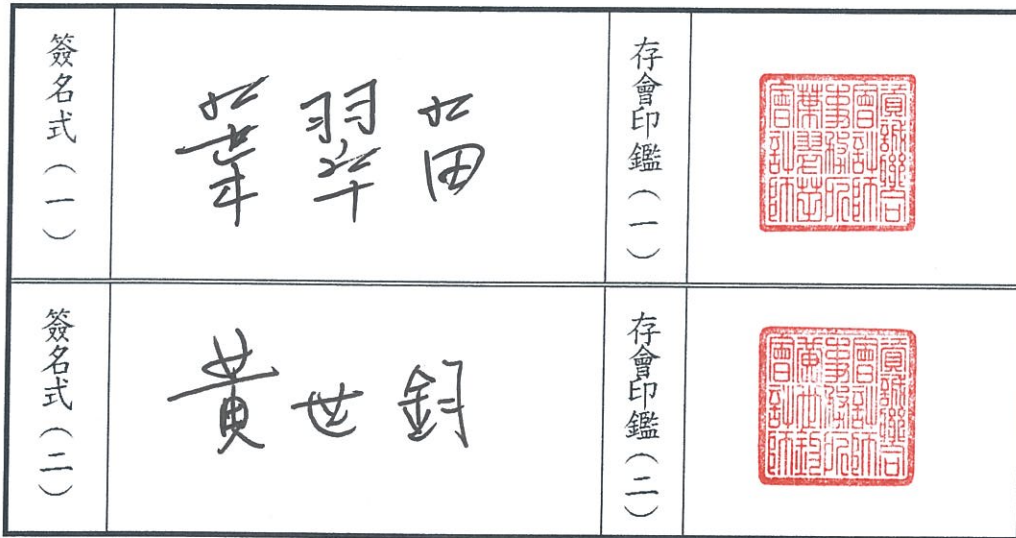 簽名式（一）
葉翠苗
存會印鑑（一）
資誠聯合
會計師
事務所
葉翠苗
會計師
簽名式（二）
黃世鈞
存會印鑑（二）
資誠聯合
會計師
事務所
黃世鈞
會計師